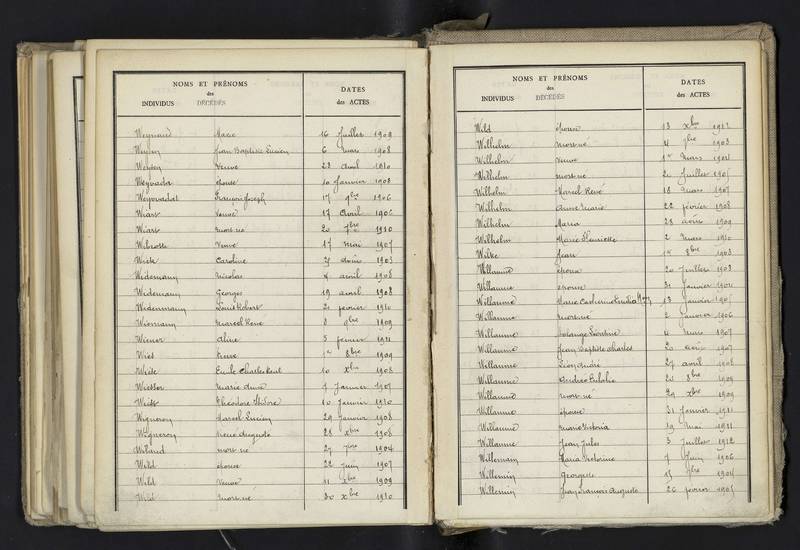 NOMS ET PRÉNOMS
des
INDIVIDUS DÉCÉDÉS
DATES
des ACTES
Weynand Marie 16 Juillet 1909
Jean Baptiste Lucien 6 mars 1908
Veuve 23 avril 1910
épouse 10 Janvier 1908
François Joseph 17 9bre 1906
Wiart Veuve 17 Avril 1906
Wiart mort né 20 1910
Veuve 17 mai 1907
Caroline août 1903
Wedemann Nicolas 4 avril 1908
Wedemann Georges 19 avril 1908
Wedemann Louis Robert 2 février 1910
Marcel René 8 9bre 1909
Wiener Aline 5 février 1911
Wies 8bre 1909
Emile Charles 10 Xbre 1908
Marie Janvier 1907
Weiss Théodore 10 Janvier 1910
Wigneron Marcel Lucien 29 Janvier 1908
Wigneron René Auguste 28 Xbre 1908
Wiland mort né 27 1904
Wild épouse 22 Juin 1907
Wild Veuve 1909
Wild Mort né 30 Xbre 1910
NOMS ET PRÉNOMS
des
INDIVIDUS DÉCÉDÉS
DATES
des ACTES
Wild épouse 13 Xbre 1912
Wilhelm mort né 4 1903
Wilhelm Veuve 1er mars 1904
Wilhelm mort né Juillet 1905
Wilhelm Marcel René 18 mars 1907
Wilhelm Anne Marie 22 février 1908
Wilhelm Maria 28 août 1909
Wilhelm Marie Henriette 2 mars 1910
Wilke Jean 8bre 1903
Willaume épouse 20 Juillet 1903
Willaume épouse Janvier 1904
Willaume Marie Catherine 13 Janvier 1905
Willaume mort né 2 Janvier 1906
Willaume Solange Léontine 4 mars 1907
Willaume Jean Baptiste Charles août 1907
Willaume Léon André 27 avril 1908
Willaume Andrée Eulalie 20 8bre 1909
Willaume mort né 29 Xbre 1909
Willaume épouse 31 Janvier 1911
Willaume Marie 19 Mai 1911
Willaume Jean Jules 3 Juillet 1912
Willemain Maria Victorine 7 Juin 1906
Willemin Georgette 1904
Willemin Jean François Auguste 26 février 1905